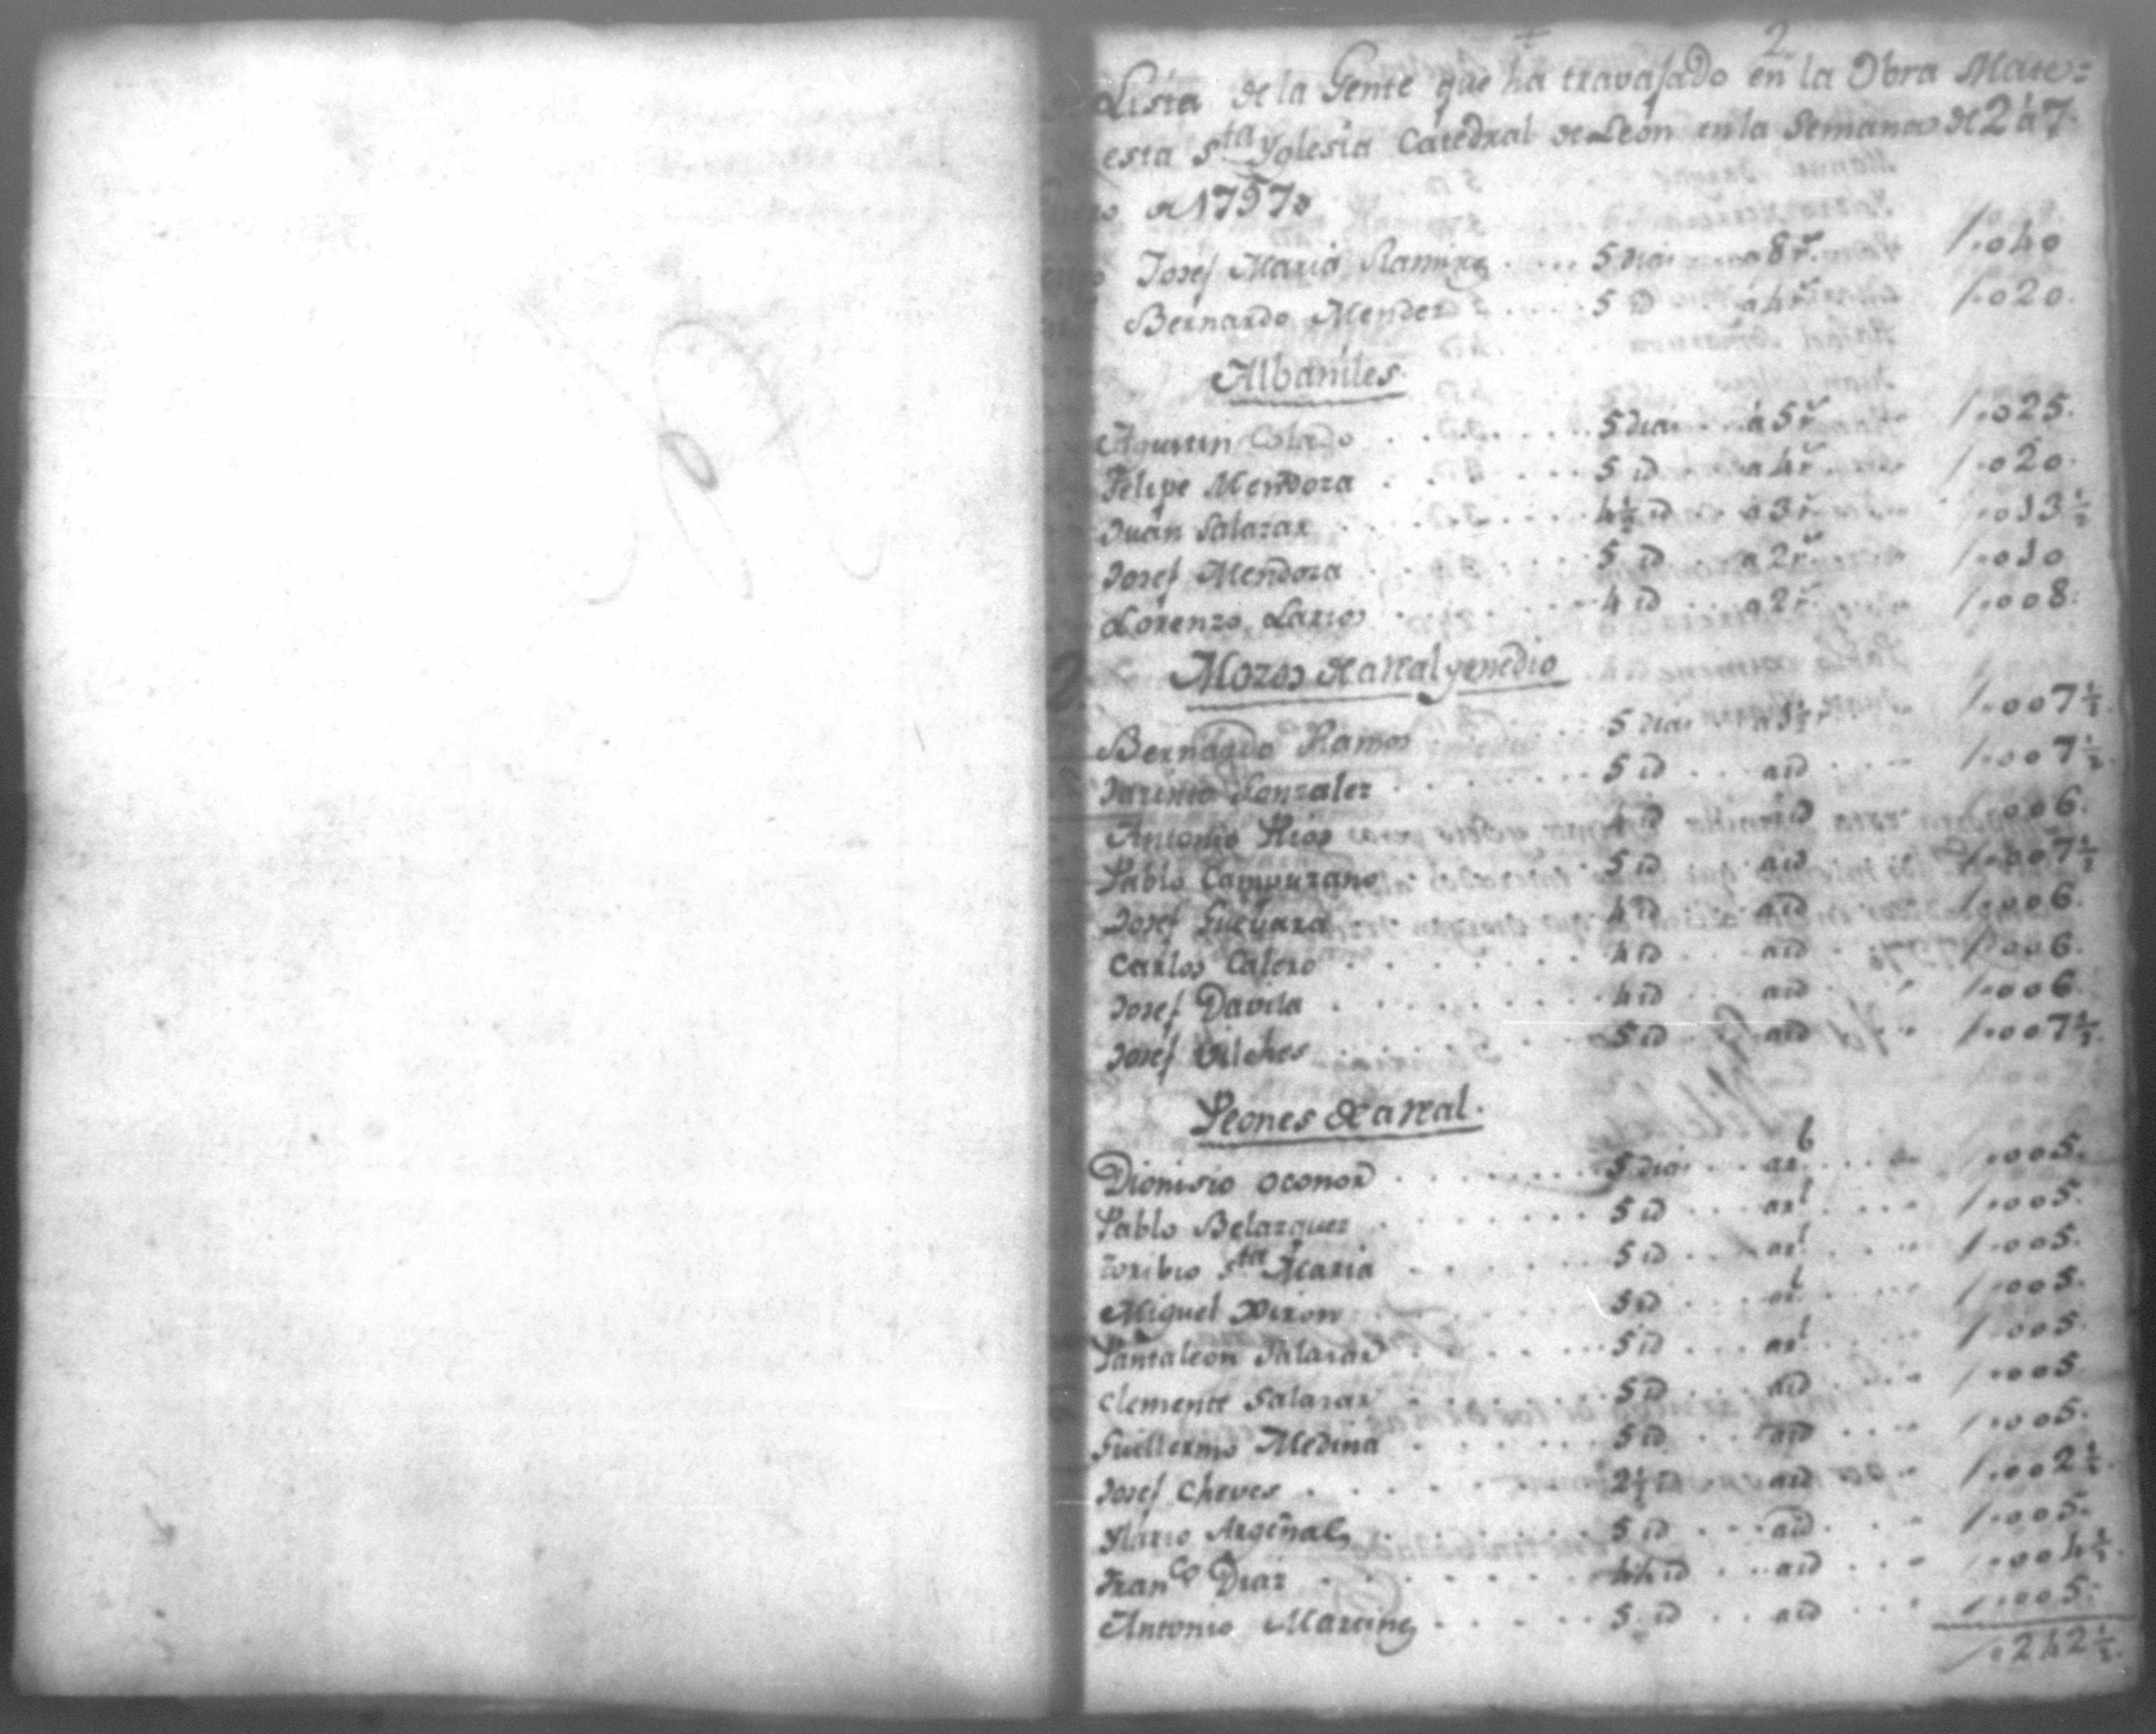 2
Lista de la Gente que ha travajado en la Obra Mate=
esta Sta Yglesia Catedral de Leon en la Semana de 2 á 7
de 1797
Josef Maria Ramirez 5 dias a 8 rs /.040
Bernardo Mendez 5 id á 4 rs /.020.
Albañiles
Agustin Colado 5 dias á 5 rs /.025.
Felipe Mendoza 5 id a 4 rs /.020.
Juan Salazar 4½ id a 3 rs /.013½
Josef Mendoza 5 id a 2 rs /.010
Lorenzo Larios 4 id a 2 rs /.008.
Mozos de a real y medio
Bernardo Ramos 5 dias a 1½ r /.007½
Jacinto Gonzalez 5 id a id /.007½
Antonio Rios 4 id a id /.006.
Pablo Campuzano 5 id a id /.007½
Josef Guevara 4 id a id /.006.
Carlos Calero 4 id a id /.006.
Josef Davila 4 id a id /.006.
Josef Vilches 5 id a id /.007½.
Peones de a real.
Dionisio Oconor 5 dias a rl /.005.
Pablo Belazquez 5 id a rl /.005.
Toribio Sta Maria 5 id a rl /.005.
Miguel 5 id a rl /.005.
Pantaleon Salazar 5 id a rl /.005
Clemente Salazar 5 id a id /.005
Guillermo Medina 5 id a id /.005.
Josef Cheves 2½ id a id /.002½.
Ylario Argeñal 5 id a id /.005.
Franco Diaz 4½ id a id /.004½.
Antonio Martinez 5 id a id /.005.
/.242½.